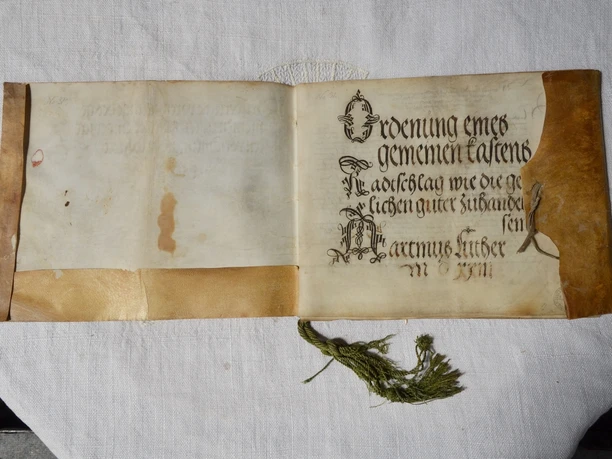 Ordenung eines
gemeinen kastens
Radtschlag wie die ge
lichen guter zuhandel
sen
Martinus Luther
M D XXIII